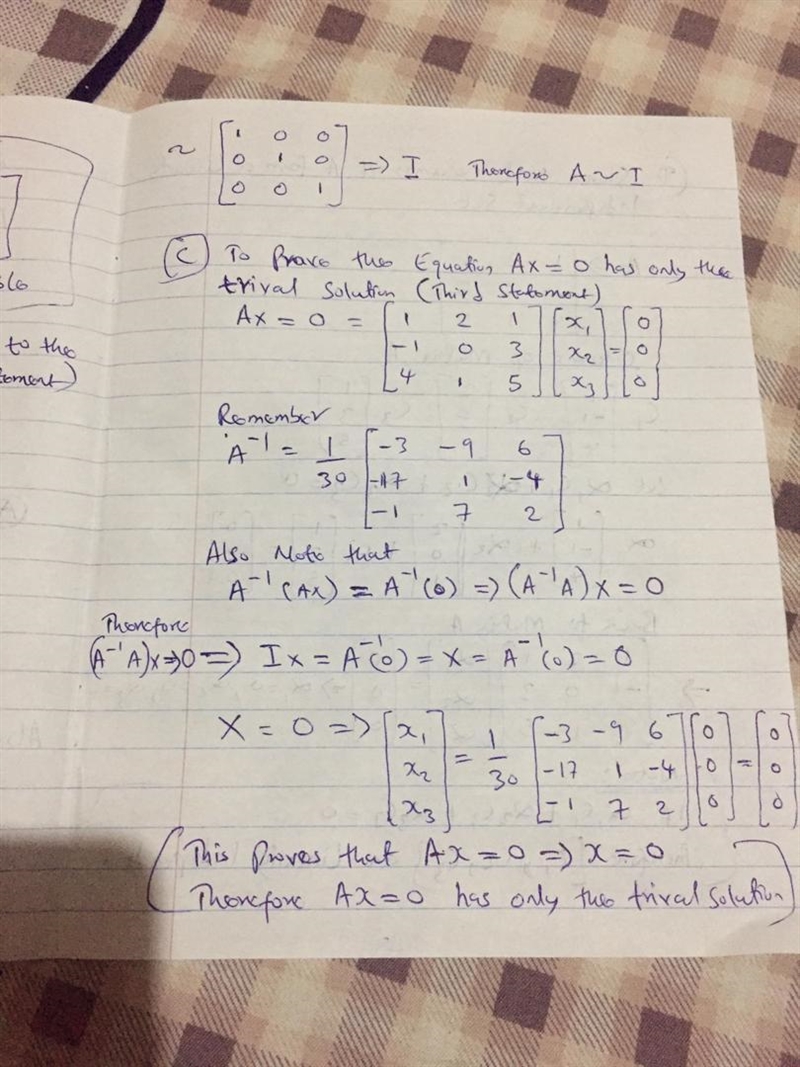 ~ [1 0 0
0 1 0
0 0 1] => I Therefore A ~ I
(C) To Prove the Equation AX = 0 has only the
trival Solution (Third Statement)
AX = 0 = [1 2 1
-1 0 3
4 1 5] [x₁
x₂
x₃] = [0
0
0]
Remember
A⁻¹ = 1/30 [-3 -9 6
-17 1 -4
-1 7 2]
Also Note that
A⁻¹(AX) = A⁻¹(0) => (A⁻¹A)X = 0
Therefore
(A⁻¹A)X => 0 => IX = A⁻¹(0) = X = A⁻¹(0) = 0
X = 0 => [x₁
x₂
x₃] = 1/30 [-3 -9 6
-17 1 -4
-1 7 2] [0
0
0] = [0
0
0]
(This Proves that AX = 0 => X = 0
Therefore AX = 0 has only the trival solution)
to the